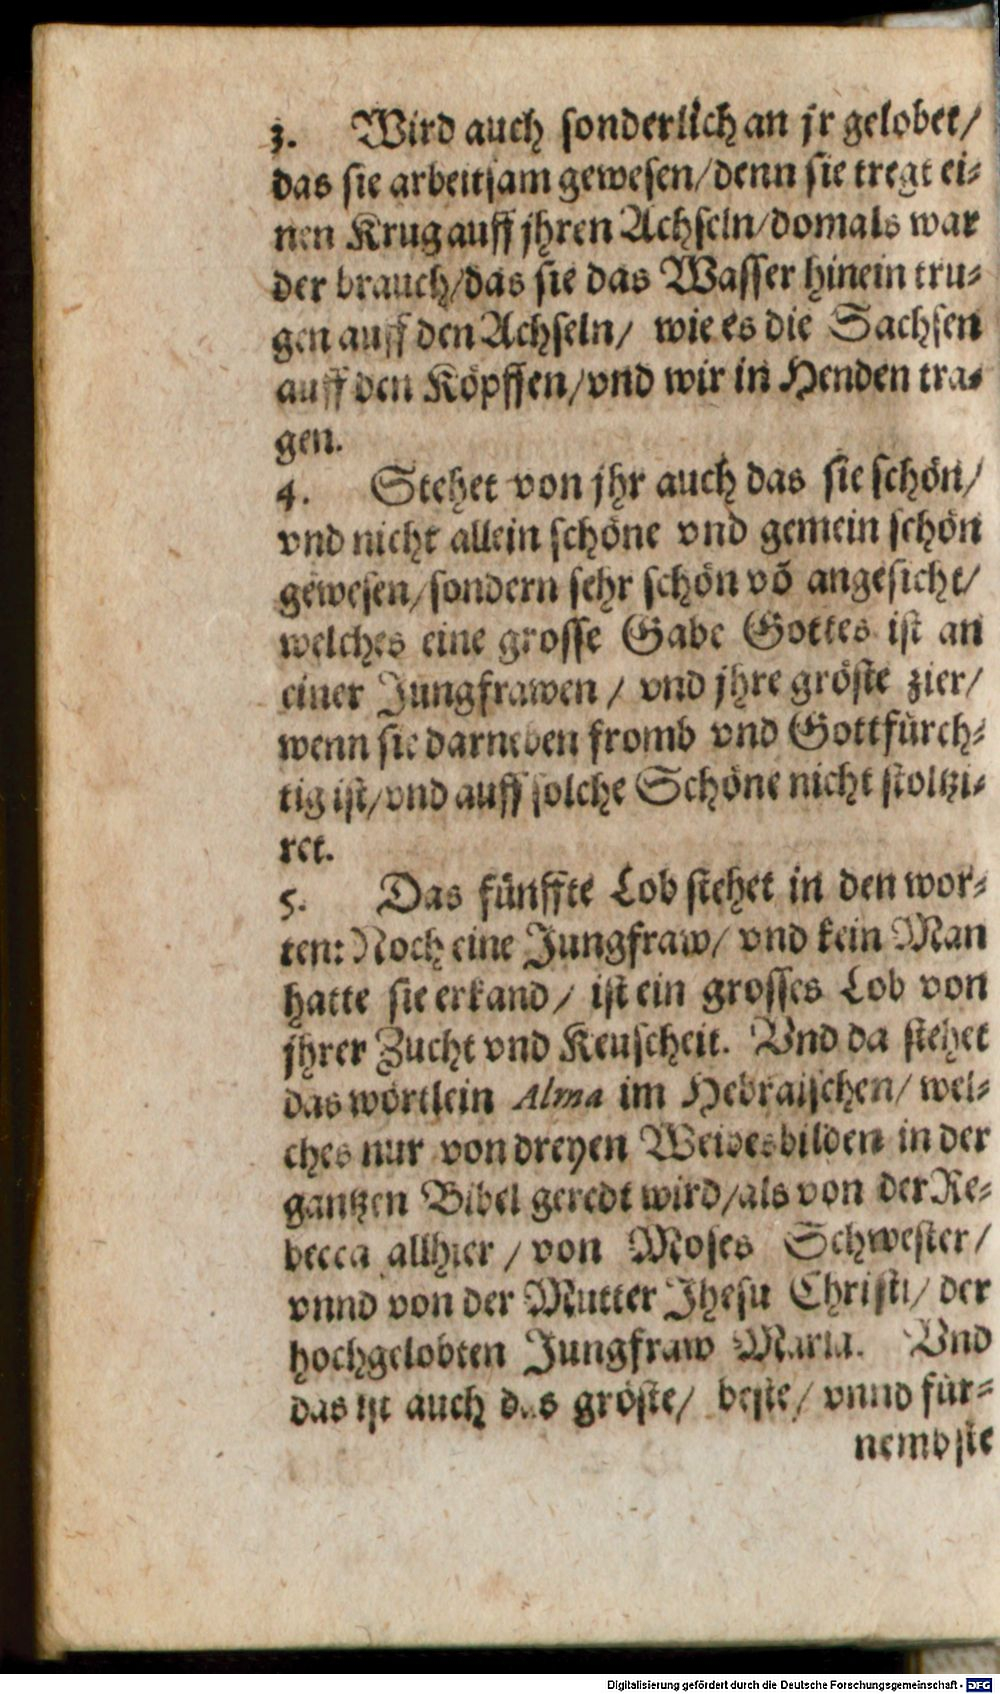 3. Wird auch sonderlich an jr gelobet/
das sie arbeitsam gewesen/denn sie tregt ei-
nen Krug auff jhren Achseln/domals war
der brauch/das sie das Wasser hinein tru-
gen auff den Achseln/ wie es die Sachsen
auff den Köpffen/vnd wir in Henden tra-
gen.
4. Stehet von jhr auch das sie schön/
vnd nicht allein schöne vnd gemein schön
gewesen/sondern sehr schön vō angesicht/
welches eine grosse Gabe Gottes ist an
einer Jungfrawen / vnd jhre gröste zier/
wenn sie darneben fromb vnd Gottfürch-
tig ist/vnd auff solche Schöne nicht stoltzi-
ret.
5. Das fünffte Lob stehet in den wor-
ten: Noch eine Jungfraw/ vnd kein Man
hatte sie erkand/ ist ein grosses Lob von
jhrer Zucht vnd Keuscheit. Vnd da stehet
das wörtlein Alma im Hebraischen/ wel-
ches nur von dreyen Weibesbilden in der
gantzen Bibel geredt wird/als von der Re-
becca allhier / von Moses Schwester/
vnnd von der Mutter Jhesu Christi/ der
hochgelobten Jungfraw Maria. Vnd
das ist auch das gröste/ beste/ vnnd für-
nembste
Digitalisierung gefördert durch die Deutsche Forschungsgemeinschaft - DFG